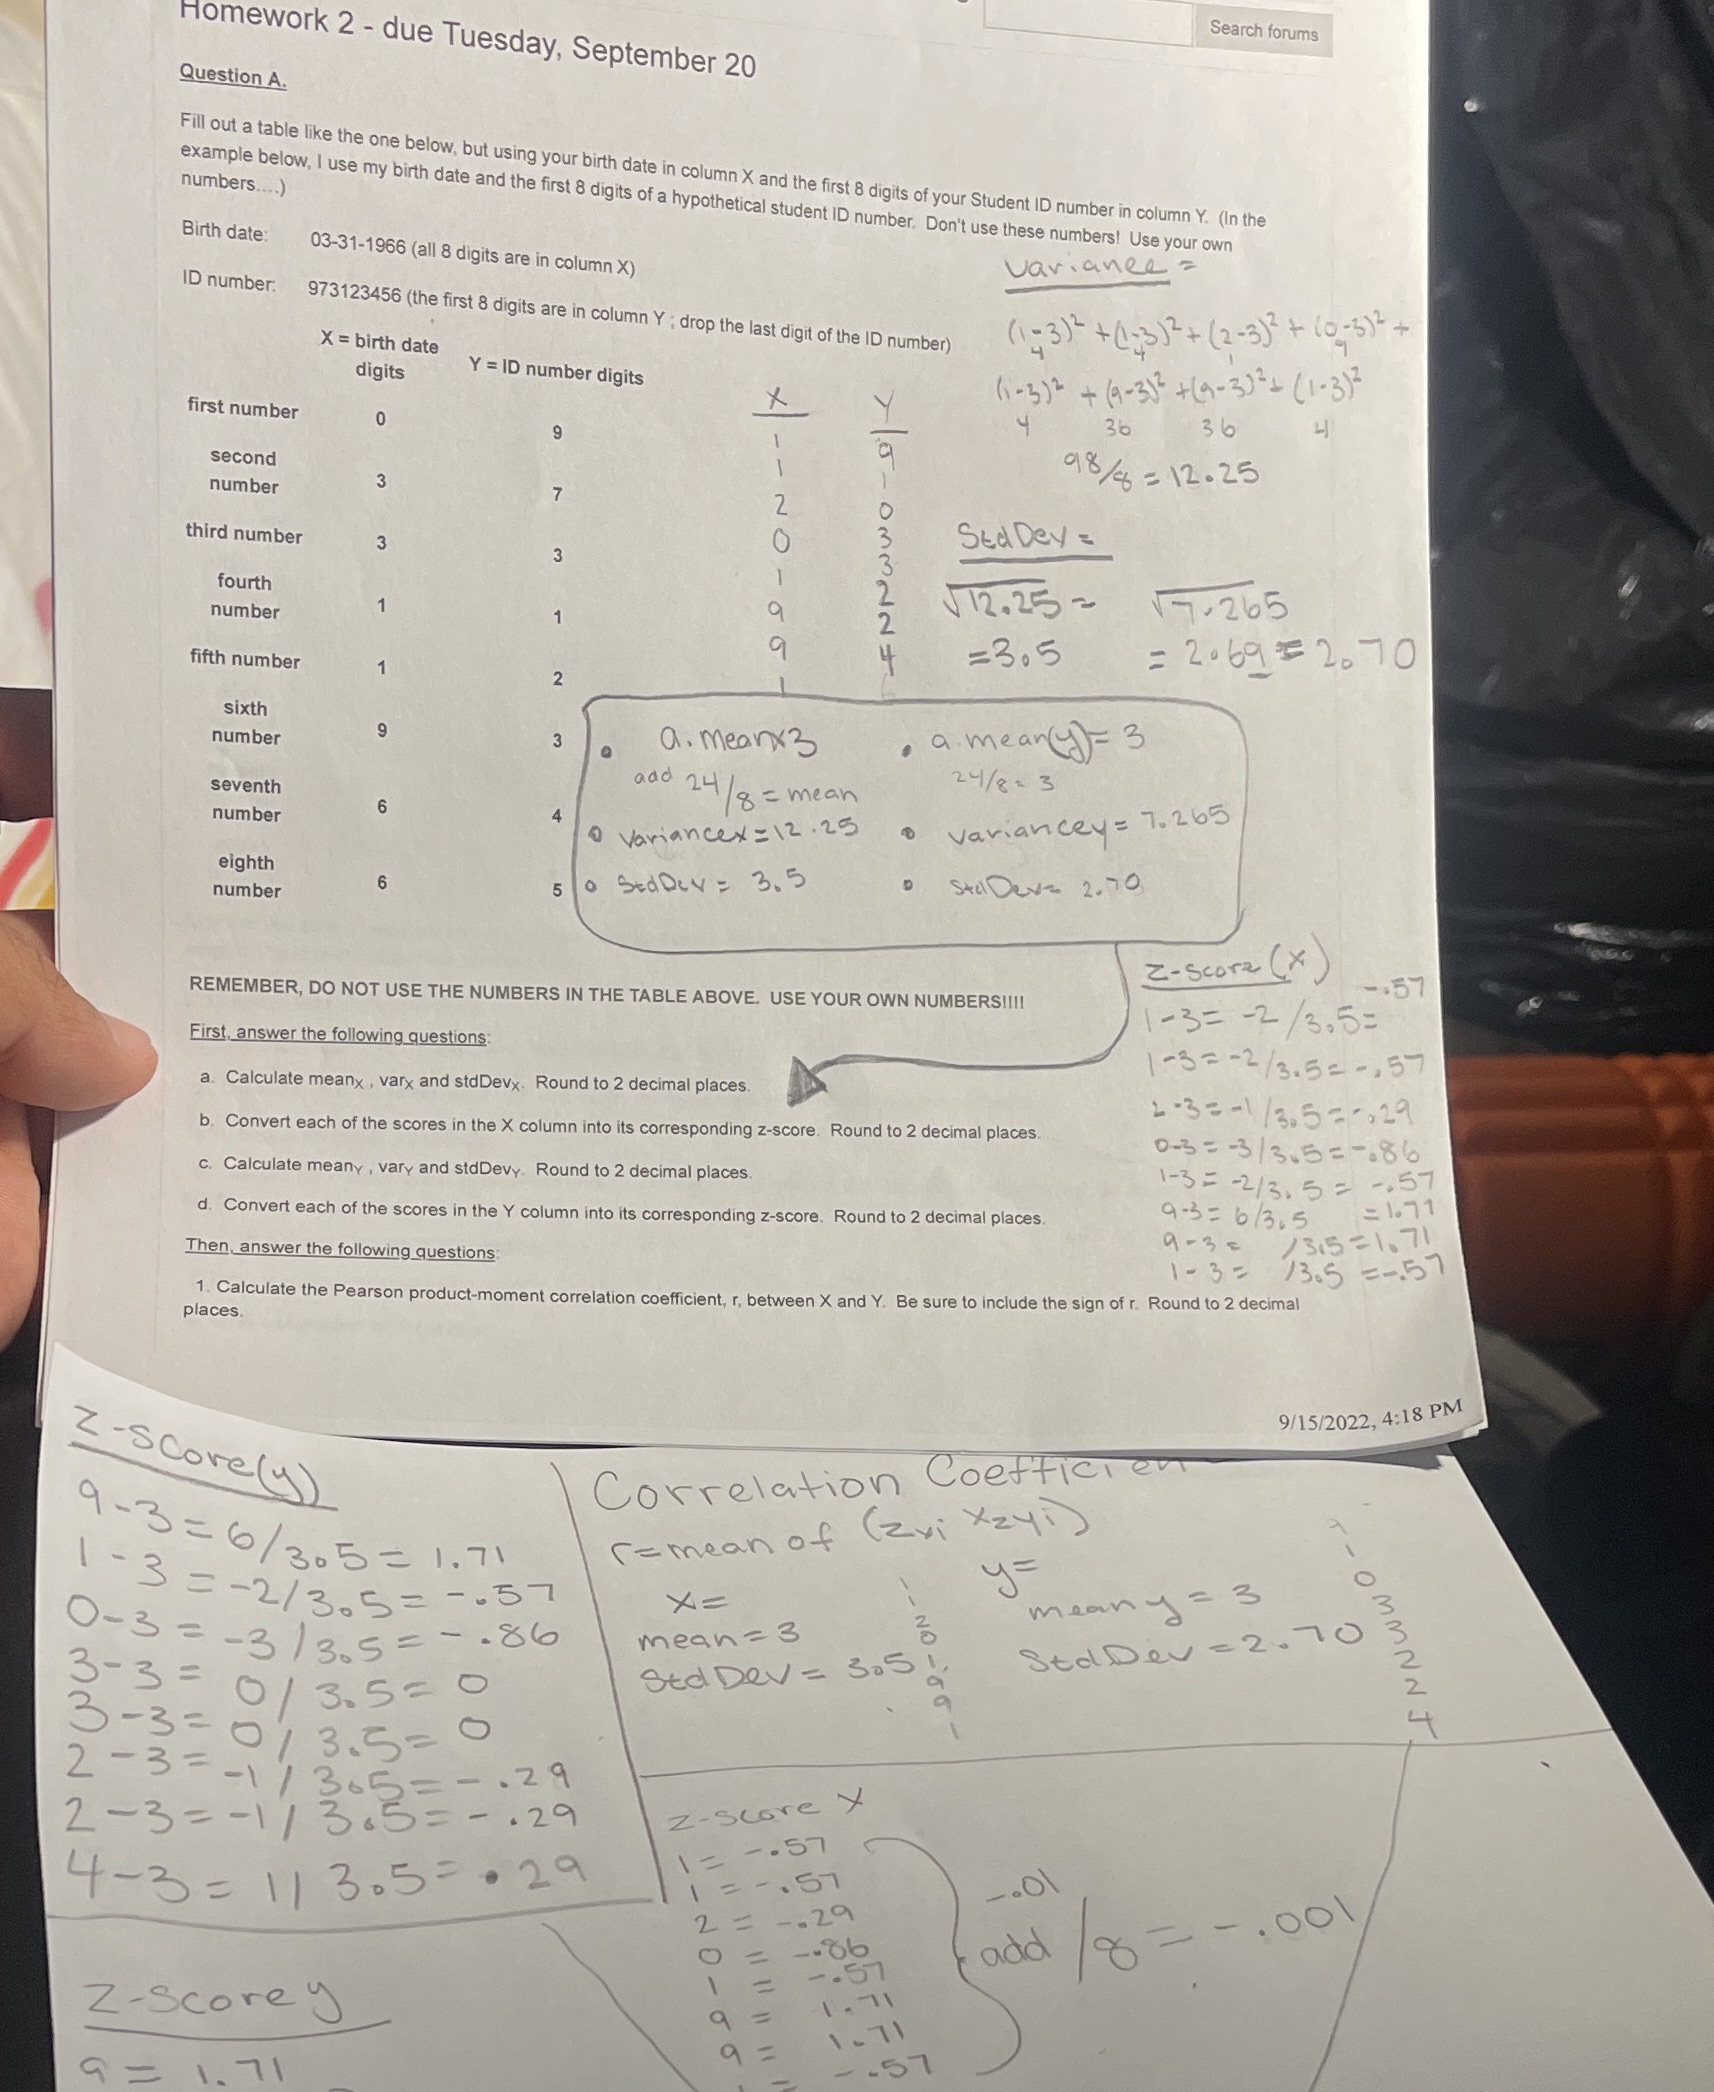 Homework 2 - due Tuesday, September 20
Search forums
Question A.
Fill out a table like the one below, but using your birth date in column X and the first 8 digits of your Student ID number in column Y. (In the
example below, I use my birth date and the first 8 digits of a hypothetical student ID number. Don't use these numbers! Use your own
numbers....)
Birth date: 03-31-1966 (all 8 digits are in column X)
ID number: 973123456 (the first 8 digits are in column Y ; drop the last digit of the ID number)
X = birth date digits Y = ID number digits
first number 0 9
second number 3 7
third number 3 3
fourth number 1 1
fifth number 1 2
sixth number 9 3
seventh number 6 4
eighth number 6 5
X Y
1 9
1 1
2 0
0 3
1 3
9 2
9 2
1 4
variance =
(1-3)² + (1-3)² + (2-3)² + (0-3)² +
4 4 1 9
(1-3)² + (9-3)² + (9-3)² + (1-3)²
4 36 36 4
98/8 = 12.25
Std Dev =
√12.25 = √7.265
= 3.5 = 2.69 = 2.70
a. meanx 3 a. mean(y) = 3
add 24/8 = mean 24/8 = 3
variancex = 12.25 variancey = 7.265
Std Dev = 3.5 Std Dev = 2.70
REMEMBER, DO NOT USE THE NUMBERS IN THE TABLE ABOVE. USE YOUR OWN NUMBERS!!!!
First, answer the following questions:
a. Calculate meanX , varX and stdDevX. Round to 2 decimal places.
b. Convert each of the scores in the X column into its corresponding z-score. Round to 2 decimal places.
c. Calculate meanY , varY and stdDevY. Round to 2 decimal places.
d. Convert each of the scores in the Y column into its corresponding z-score. Round to 2 decimal places.
Then, answer the following questions:
1. Calculate the Pearson product-moment correlation coefficient, r, between X and Y. Be sure to include the sign of r. Round to 2 decimal
places.
z-score (x)
1-3 = -2/3.5 = -.57
1-3 = -2/3.5 = -.57
2-3 = -1/3.5 = -.29
0-3 = -3/3.5 = -.86
1-3 = -2/3.5 = -.57
9-3 = 6/3.5 = 1.71
9-3 = /3.5 = 1.71
1-3 = /3.5 = -.57
9/15/2022, 4:18 PM
z-score(y)
9-3 = 6/3.5 = 1.71
1-3 = -2/3.5 = -.57
0-3 = -3/3.5 = -.86
3-3 = 0/3.5 = 0
3-3 = 0/3.5 = 0
2-3 = -1/3.5 = -.29
2-3 = -1/3.5 = -.29
4-3 = 1/3.5 = .29
Correlation Coefficien
r = mean of (zxi x zyi)
x=
mean = 3
Std Dev = 3.5
1
1
2
0
1
9
9
1
y=
mean y = 3
Std Dev = 2.70
9
1
0
3
3
2
2
4
z-score x
1 = -.57
1 = -.57
2 = -.29
0 = -.86
1 = -.57
9 = 1.71
9 = 1.71
= -.57
-.01
add /8 = -.001
z-score y
9 = 1.71